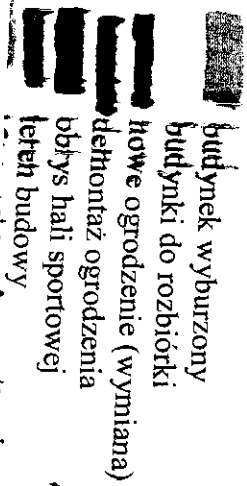 budynek wyburzony
budynki do rozbiórki
nowe ogrodzenie (wymiana)
demontaż ogrodzenia
obrys hali sportowej
teren budowy